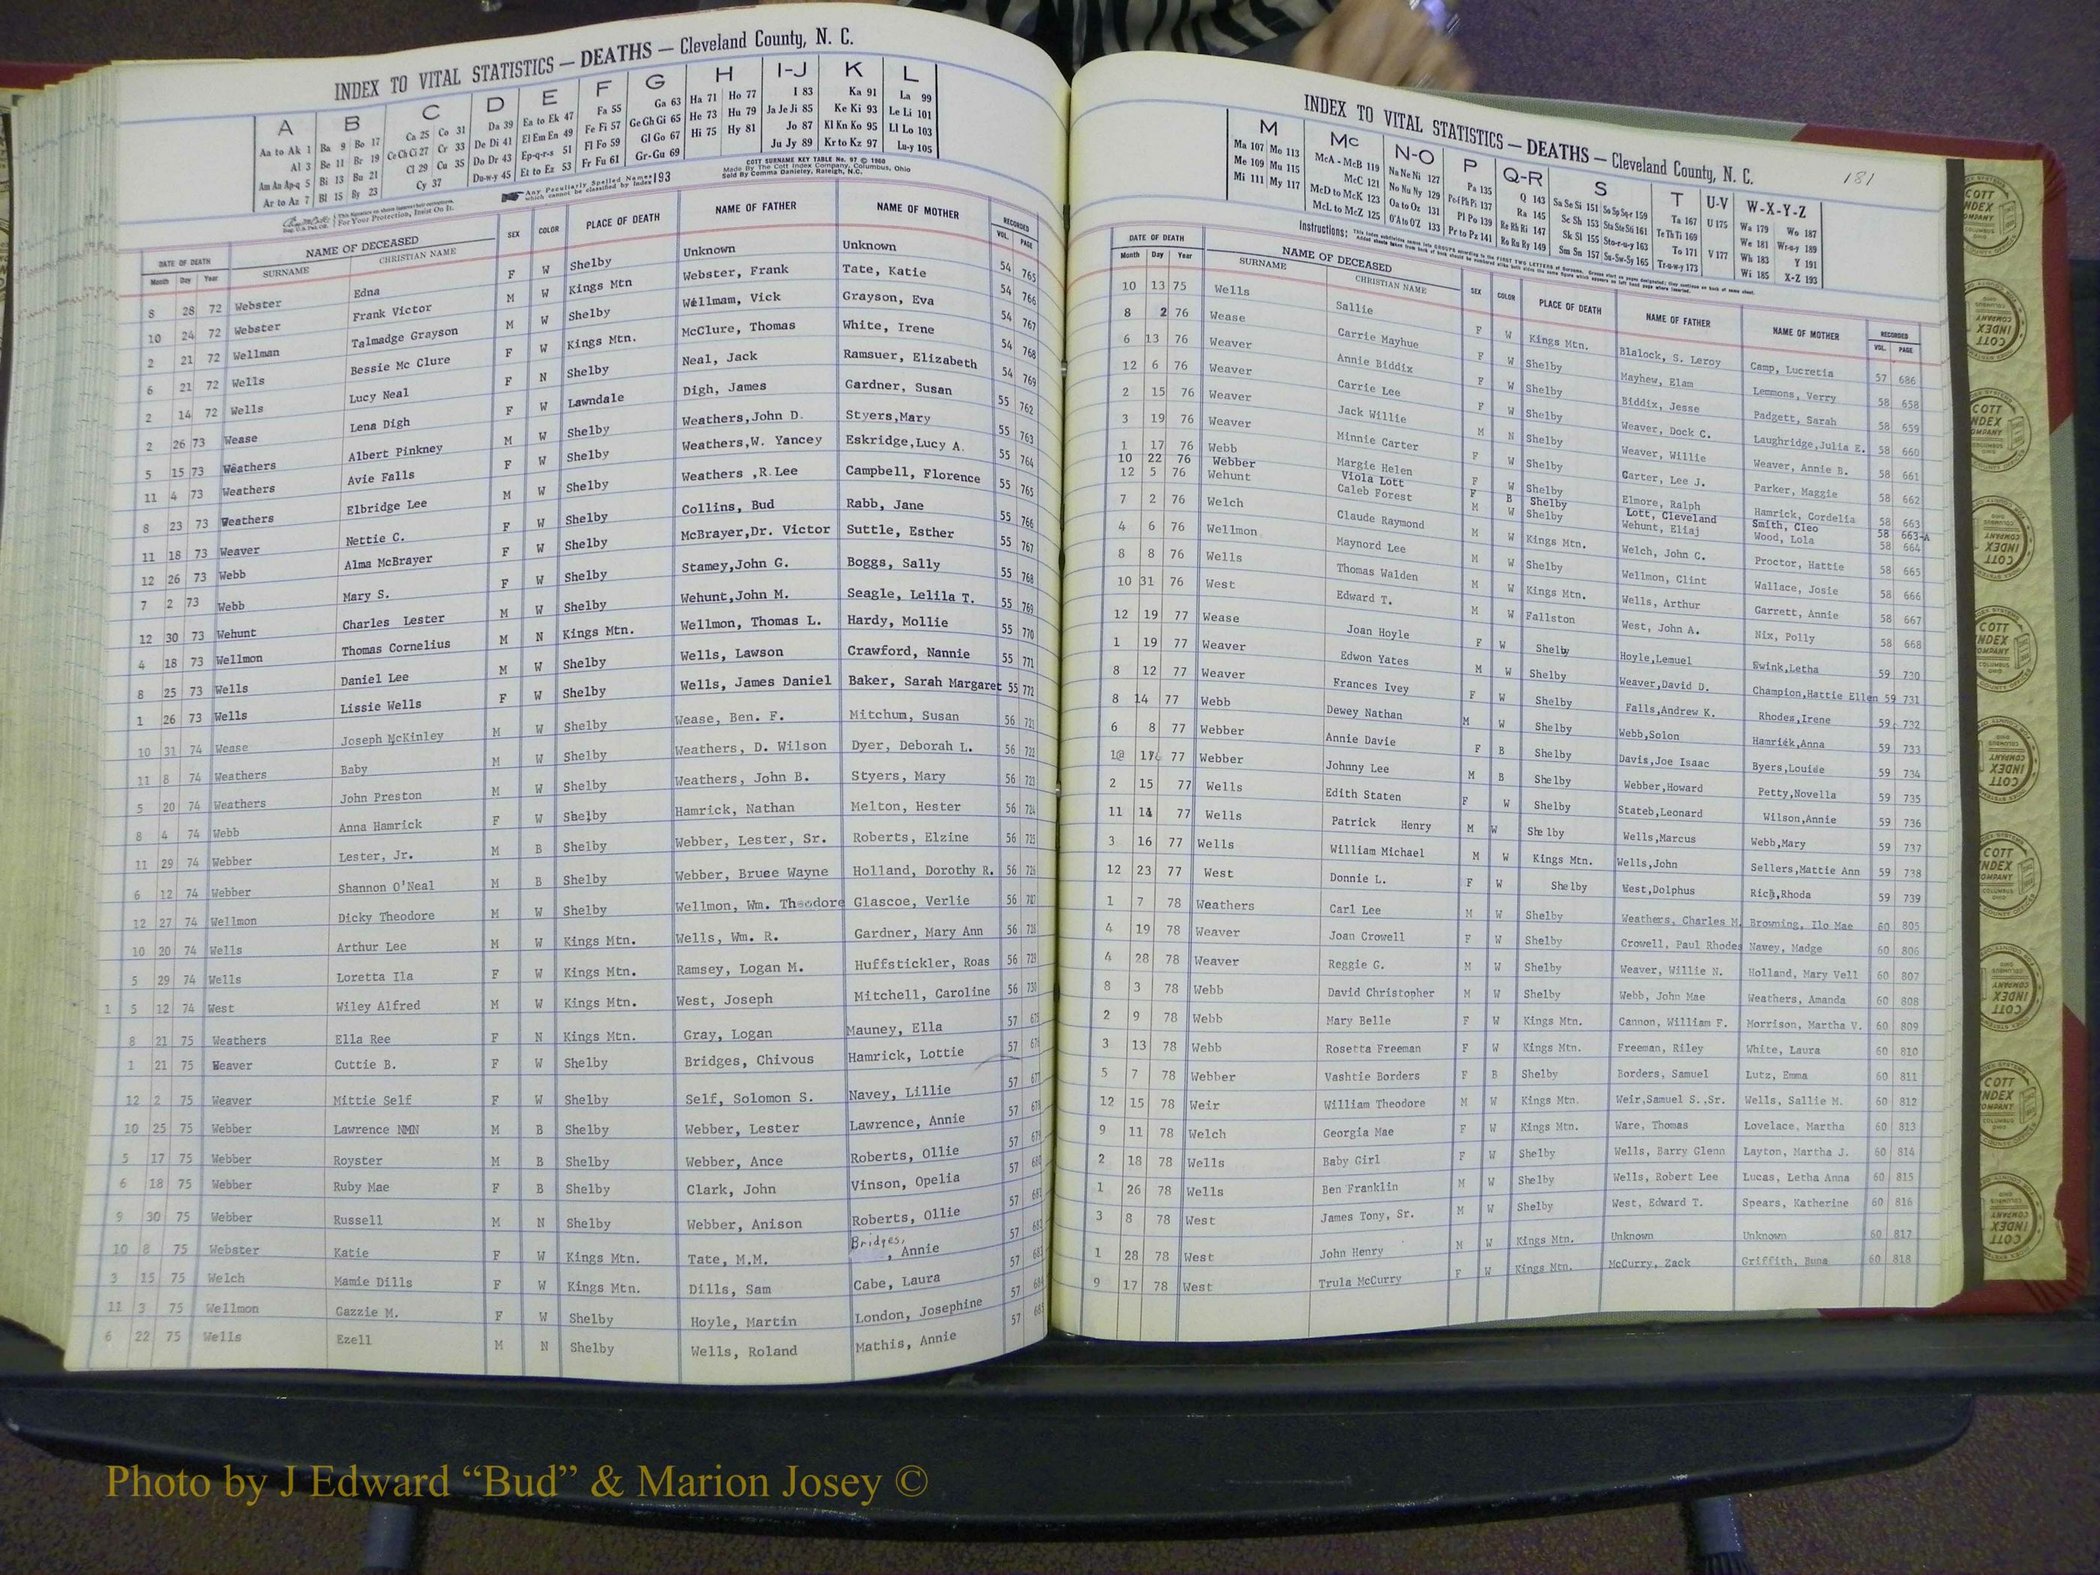 INDEX TO VITAL STATISTICS — DEATHS — Cleveland County, N. C.
A B C D E F G H I-J K L
Aa to Ak 1 Ba 9 Bo 17 Ca 25 Co 31 Da 39 Ea to Ek 47 Fa 55 Ga 63 Ha 71 Ho 77 I 83 Ka 91 La 99
Al 3 Be 11 Br 19 Ce Ch Ci 27 Cr 33 De Di 41 El Em En 49 Fe Fi 57 Ge Gh Gi 65 He 73 Hu 79 Ja Je Ji 85 Ke Ki 93 Le Li 101
Am An Ap-q 5 Bi 13 Bu 21 Cl 29 Cu 35 Do Dr 43 Ep-q-r-s 51 Fl Fo 59 Gl Go 67 Hi 75 Hy 81 Jo 87 Kl Kn Ko 95 Ll Lo 103
Ar to Az 7 Bl 15 By 23 Cy 37 Du-w-y 45 Et to Ez 53 Fr Fu 61 Gr-Gu 69 Ju Jy 89 Kr to Kz 97 Lu-y 105
For Your Protection, Insist On It.
Any Peculiarly Spelled Names which cannot be classified by Index 193
COTT SURNAME KEY TABLE No. 97 © 1960
Made By The Cott Index Company, Columbus, Ohio
Sold By Comma Danieley, Raleigh, N.C.
DATE OF DEATH NAME OF DECEASED SEX COLOR PLACE OF DEATH NAME OF FATHER NAME OF MOTHER RECORDED
Month Day Year SURNAME CHRISTIAN NAME VOL. PAGE
8 28 72 Webster Edna F W Shelby Unknown Unknown 54 765
10 24 72 Webster Frank Victor M W Kings Mtn Webster, Frank Tate, Katie 54 766
2 21 72 Wellman Talmadge Grayson M W Shelby Wellmam, Vick Grayson, Eva 54 767
6 21 72 Wells Bessie Mc Clure F W Kings Mtn. McClure, Thomas White, Irene 54 768
2 14 72 Wells Lucy Neal F N Shelby Neal, Jack Ramsuer, Elizabeth 54 769
2 26 73 Wease Lena Digh F W Lawndale Digh, James Gardner, Susan 55 762
5 15 73 Weathers Albert Pinkney M W Shelby Weathers,John D. Styers,Mary 55 763
11 4 73 Weathers Avie Falls F W Shelby Weathers,W. Yancey Eskridge,Lucy A. 55 764
8 23 73 Weathers Elbridge Lee M W Shelby Weathers ,R.Lee Campbell, Florence 55 765
11 18 73 Weaver Nettie C. F W Shelby Collins, Bud Rabb, Jane 55 766
12 26 73 Webb Alma McBrayer F W Shelby McBrayer,Dr. Victor Suttle, Esther 55 767
7 2 73 Webb Mary S. F W Shelby Stamey,John G. Boggs, Sally 55 768
12 30 73 Wehunt Charles Lester M W Shelby Wehunt,John M. Seagle, Lelila T. 55 769
4 18 73 Wellmon Thomas Cornelius M N Kings Mtn. Wellmon, Thomas L. Hardy, Mollie 55 770
8 25 73 Wells Daniel Lee M W Shelby Wells, Lawson Crawford, Nannie 55 771
1 26 73 Wells Lissie Wells F W Shelby Wells, James Daniel Baker, Sarah Margaret 55 772
10 31 74 Wease Joseph McKinley M W Shelby Wease, Ben. F. Mitchum, Susan 56 721
11 8 74 Weathers Baby M W Shelby Weathers, D. Wilson Dyer, Deborah L. 56 722
5 20 74 Weathers John Preston M W Shelby Weathers, John B. Styers, Mary 56 723
8 4 74 Webb Anna Hamrick F W Shelby Hamrick, Nathan Melton, Hester 56 724
11 29 74 Webber Lester, Jr. M B Shelby Webber, Lester, Sr. Roberts, Elzine 56 725
6 12 74 Webber Shannon O'Neal M B Shelby Webber, Bruce Wayne Holland, Dorothy R. 56 726
12 27 74 Wellmon Dicky Theodore M W Shelby Wellmon, Wm. Theodore Glascoe, Verlie 56 727
10 20 74 Wells Arthur Lee M W Kings Mtn. Wells, Wm. R. Gardner, Mary Ann 56 728
5 29 74 Wells Loretta Ila F W Kings Mtn. Ramsey, Logan M. Huffstickler, Roas 56 729
1 5 12 74 West Wiley Alfred M W Kings Mtn. West, Joseph Mitchell, Caroline 56 730
8 21 75 Weathers Ella Ree F N Kings Mtn. Gray, Logan Mauney, Ella 57 675
1 21 75 Weaver Cuttie B. F W Shelby Bridges, Chivous Hamrick, Lottie 57 676
12 2 75 Weaver Mittie Self F W Shelby Self, Solomon S. Navey, Lillie 57 677
10 25 75 Webber Lawrence NMN M B Shelby Webber, Lester Lawrence, Annie 57 678
5 17 75 Webber Royster M B Shelby Webber, Ance Roberts, Ollie 57 679
6 18 75 Webber Ruby Mae F B Shelby Clark, John Vinson, Opelia 57 680
9 30 75 Webber Russell M N Shelby Webber, Anison Roberts, Ollie 57
10 8 75 Webster Katie F W Kings Mtn. Tate, M.M. Bridges, , Annie 57
3 15 75 Welch Mamie Dills F W Kings Mtn. Dills, Sam Cabe, Laura 57 683
11 3 75 Wellmon Gazzie M. F W Shelby Hoyle, Martin London, Josephine 57 684
6 22 75 Wells Ezell M N Shelby Wells, Roland Mathis, Annie 57 685
INDEX TO VITAL STATISTICS — DEATHS — Cleveland County, N. C.
181
M Mc N-O P Q-R S T U-V W-X-Y-Z
Ma 107 Mo 113 McA - McB 119 Na Ne Ni 127 Pa 135 Q 143 Sa Se Si 151 So Sp Sq-r 159 Ta 167 U 175 Wa 179 Wo 187
Me 109 Mu 115 McC 121 No Nu Ny 129 Pe-f Ph Pi 137 Ra 145 Sc Sh 153 Sta Ste Sti 161 Te Th Ti 169 We 181 Wr-u-y 189
Mi 111 My 117 McD to McK 123 Oa to Oz 131 Pl Po 139 Re Rh Ri 147 Sk Sl 155 Sto-r-u-y 163 To 171 V 177 Wh 183 Y 191
McL to McZ 125 O'A to O'Z 133 Pr to Pz 141 Ro Ru Ry 149 Sm Sn 157 Su-Sw-Sy 165 Tr-u-w-y 173 Wi 185 X-Z 193
Instructions:
DATE OF DEATH NAME OF DECEASED SEX COLOR PLACE OF DEATH NAME OF FATHER NAME OF MOTHER RECORDED
Month Day Year SURNAME CHRISTIAN NAME VOL. PAGE
10 13 75 Wells Sallie F W Kings Mtn. Blalock, S. Leroy Camp, Lucretia 57 686
8 2 76 Wease Carrie Mayhue F W Shelby Mayhew, Elam Lemmons, Verry 58 658
6 13 76 Weaver Annie Biddix F W Shelby Biddix, Jesse Padgett, Sarah 58 659
12 6 76 Weaver Carrie Lee F W Shelby Weaver, Dock C. Laughridge,Julia E. 58 660
2 15 76 Weaver Jack Willie M N Shelby Weaver, Willie Weaver, Annie B. 58 661
3 19 76 Weaver Minnie Carter F W Shelby Carter, Lee J. Parker, Maggie 58 662
1 17 76 Webb Margie Helen F W Shelby Elmore, Ralph Hamrick, Cordelia 58 663
10 22 76 Webber Viola Lott F B Shelby Lott, Cleveland Smith, Cleo 58 663-A
12 5 76 Wehunt Caleb Forest M W Shelby Wehunt, Eliaj Wood, Lola 58 664
7 2 76 Welch Claude Raymond M W Kings Mtn. Welch, John C. Proctor, Hattie 58 665
4 6 76 Wellmon Maynord Lee M W Shelby Wellmon, Clint Wallace, Josie 58 666
8 8 76 Wells Thomas Walden M W Kings Mtn. Wells, Arthur Garrett, Annie 58 667
10 31 76 West Edward T. M W Fallston West, John A. Nix, Polly 58 668
12 19 77 Wease Joan Hoyle F W Shelby Hoyle,Lemuel Swink,Letha 59 730
1 19 77 Weaver Edwon Yates M W Shelby Weaver,David D. Champion,Hattie Ellen 59 731
8 12 77 Weaver Frances Ivey F W Shelby Falls,Andrew K. Rhodes,Irene 59 732
8 14 77 Webb Dewey Nathan M W Shelby Webb,Solon Hamrick,Anna 59 733
6 8 77 Webber Annie Davie F B Shelby Davis,Joe Isaac Byers,Louise 59 734
10 17 77 Webber Johnny Lee M B Shelby Webber,Howard Petty,Novella 59 735
2 15 77 Wells Edith Staten F W Shelby Stateb,Leonard Wilson,Annie 59 736
11 14 77 Wells Patrick Henry M W Shelby Wells,Marcus Webb,Mary 59 737
3 16 77 Wells William Michael M W Kings Mtn. Wells,John Sellers,Mattie Ann 59 738
12 23 77 West Donnie L. F W Shelby West,Dolphus Rich,Rhoda 59 739
1 7 78 Weathers Carl Lee M W Shelby Weathers, Charles M. Browning, Ilo Mae 60 805
4 19 78 Weaver Joan Crowell F W Shelby Crowell, Paul Rhodes Navey, Madge 60 806
4 28 78 Weaver Reggie G. M W Shelby Weaver, Willie N. Holland, Mary Vell 60 807
8 3 78 Webb David Christopher M W Shelby Webb, John Mae Weathers, Amanda 60 808
2 9 78 Webb Mary Belle F W Kings Mtn. Cannon, William F. Morrison, Martha V. 60 809
3 13 78 Webb Rosetta Freeman F W Kings Mtn. Freeman, Riley White, Laura 60 810
5 7 78 Webber Vashtie Borders F B Shelby Borders, Samuel Lutz, Emma 60 811
12 15 78 Weir William Theodore M W Kings Mtn. Weir,Samuel S.,Sr. Wells, Sallie M. 60 812
9 11 78 Welch Georgia Mae F W Kings Mtn. Ware, Thomas Lovelace, Martha 60 813
2 18 78 Wells Baby Girl F W Shelby Wells, Barry Glenn Layton, Martha J. 60 814
1 26 78 Wells Ben Franklin M W Shelby Wells, Robert Lee Lucas, Letha Anna 60 815
3 8 78 West James Tony, Sr. M W Shelby West, Edward T. Spears, Katherine 60 816
1 28 78 West John Henry M W Kings Mtn. Unknown Unknown 60 817
9 17 78 West Trula McCurry F W Kings Mtn. McCurry, Zack Griffith, Buna 60 818
Photo by J Edward “Bud” & Marion Josey ©